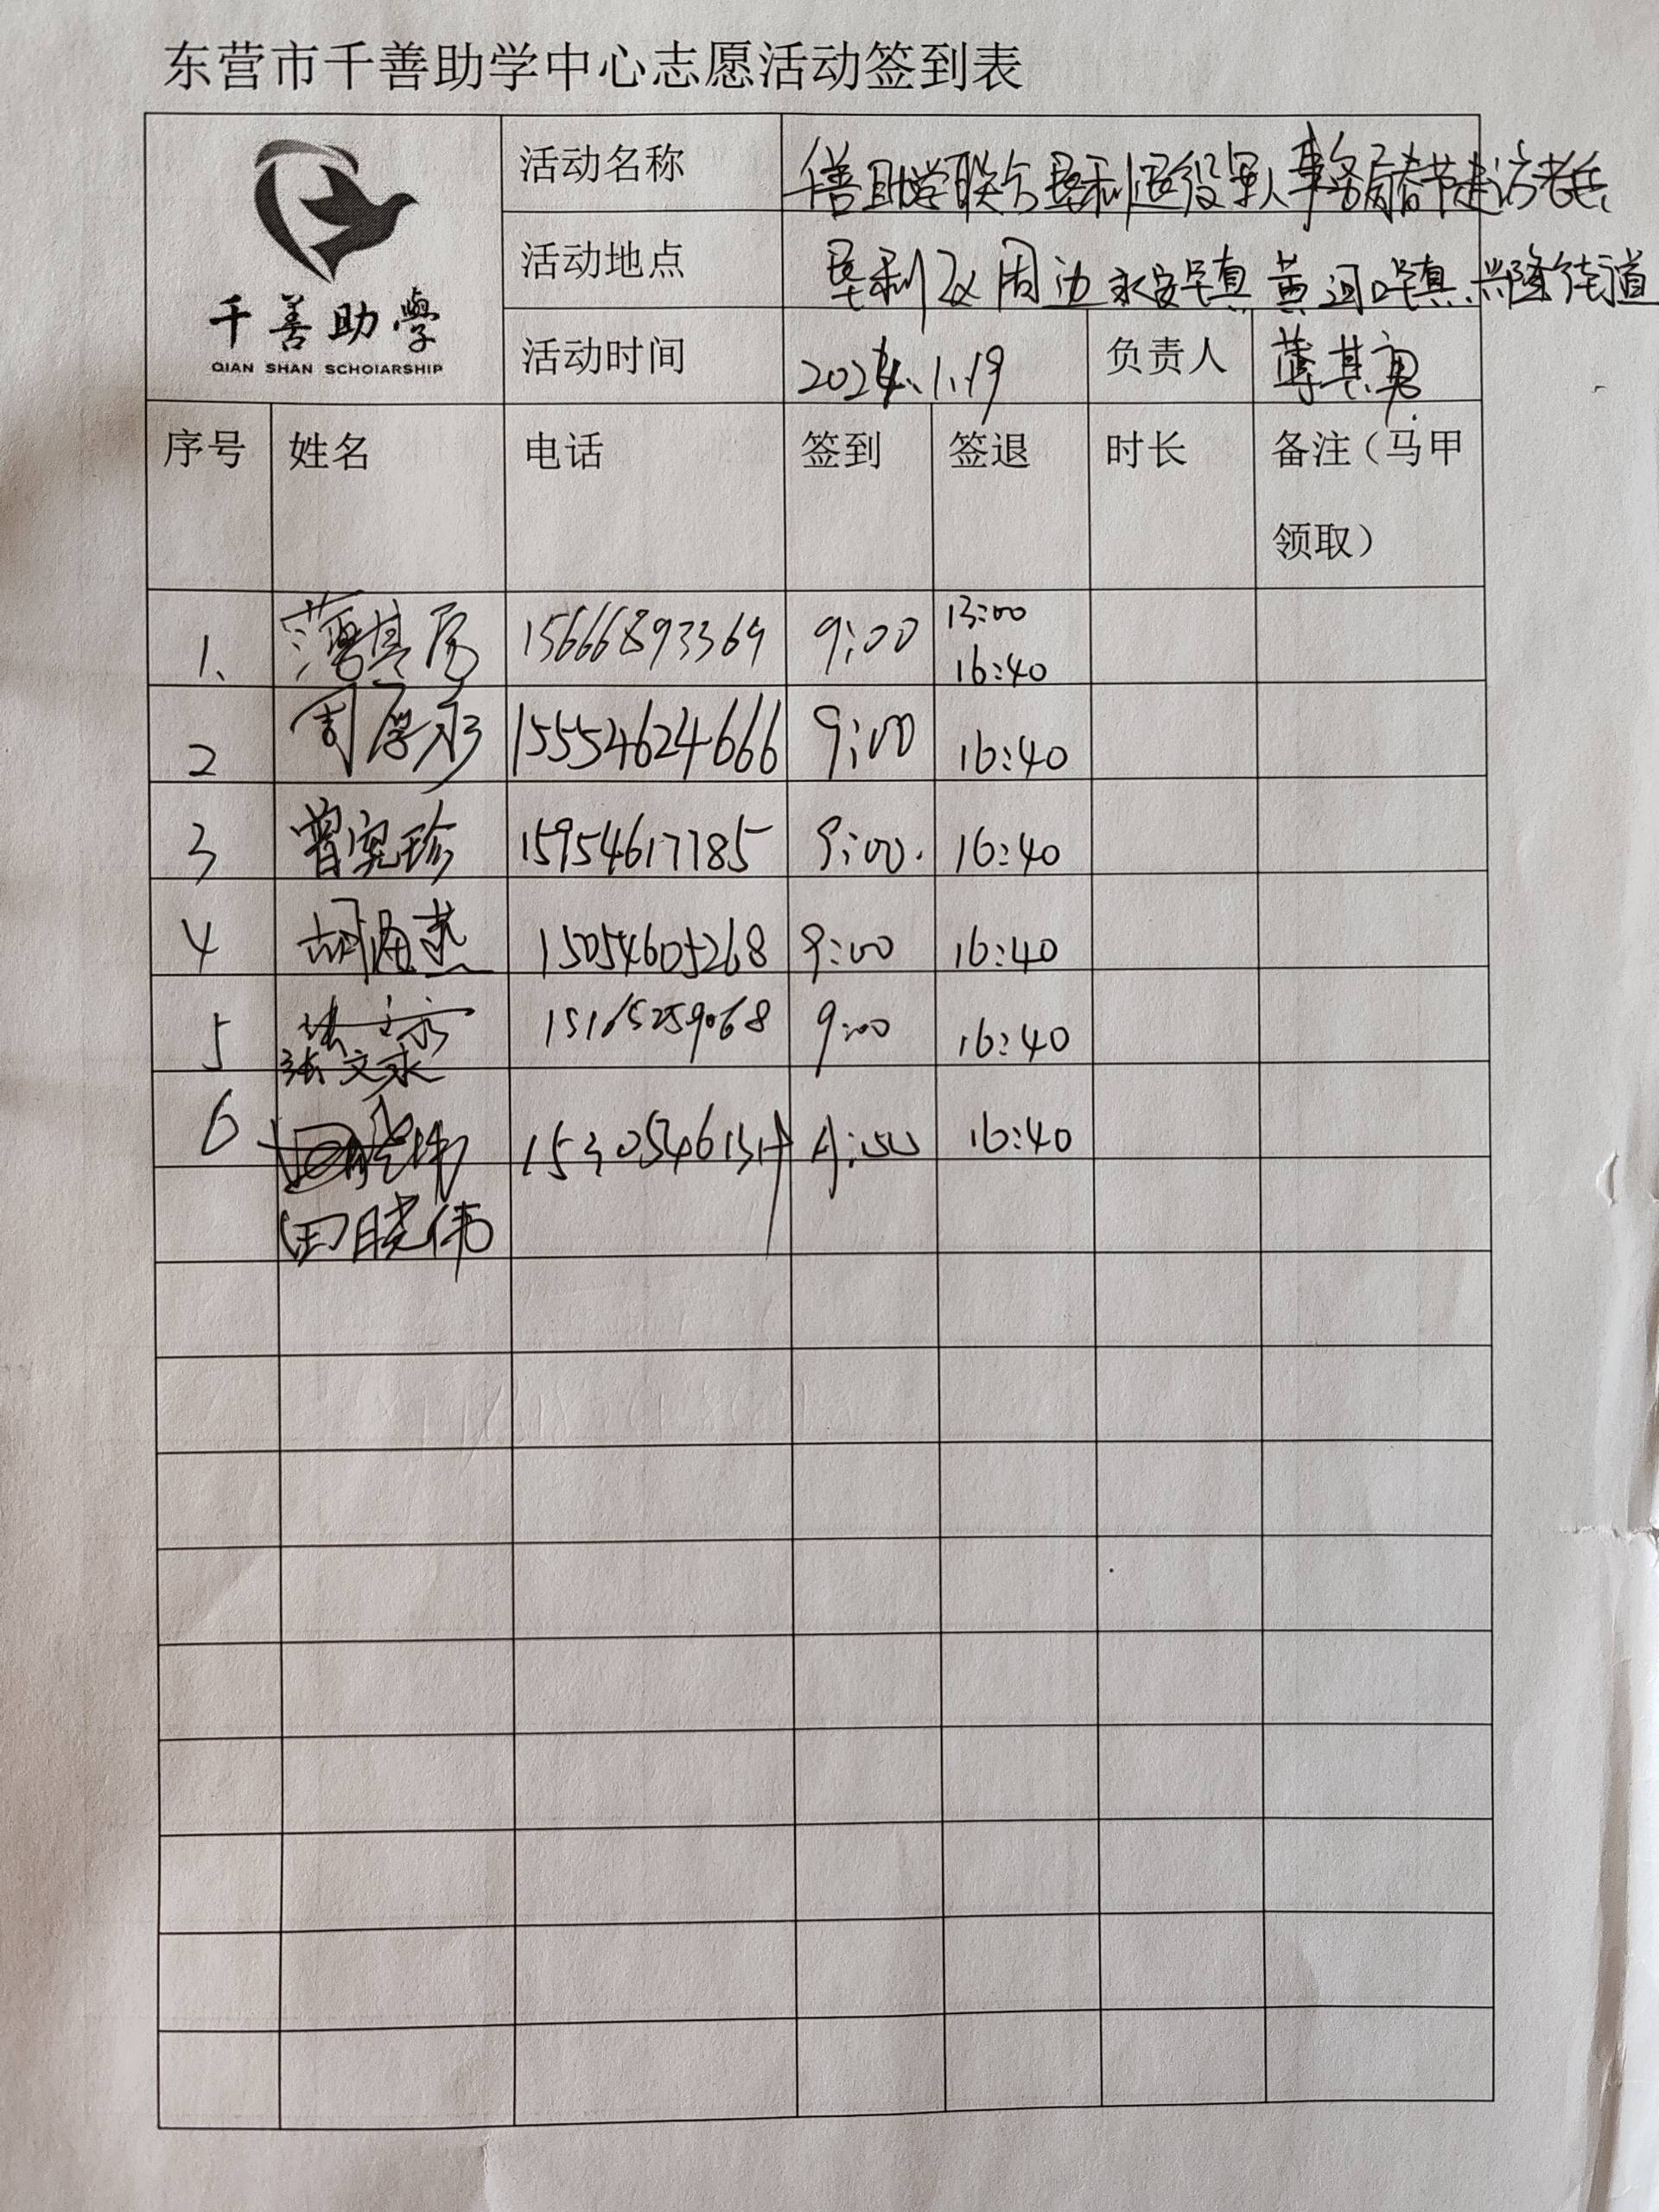 东营市千善助学中心志愿活动签到表
千善助學
QIAN SHAN SCHOlARSHIP
活动名称 千善助学联合垦利退役军人事务局春节走访老兵
活动地点 垦利及周边永安镇 黄河口镇、兴隆街道
活动时间 2024.1.19 负责人 薄其勇
序号 姓名 电话 签到 签退 时长 备注（马甲
领取）
13:00
1、 薄其 15666893369 9:00 16:40
2 周厚永 15554624666 9:00 16:40
3 曾宪珍 15954617785 9:00. 16:40
4 胡海燕 15054605268 9:00 16:40
5 15165259068 9:00 16:40
张文永
6 16:40
田晓伟